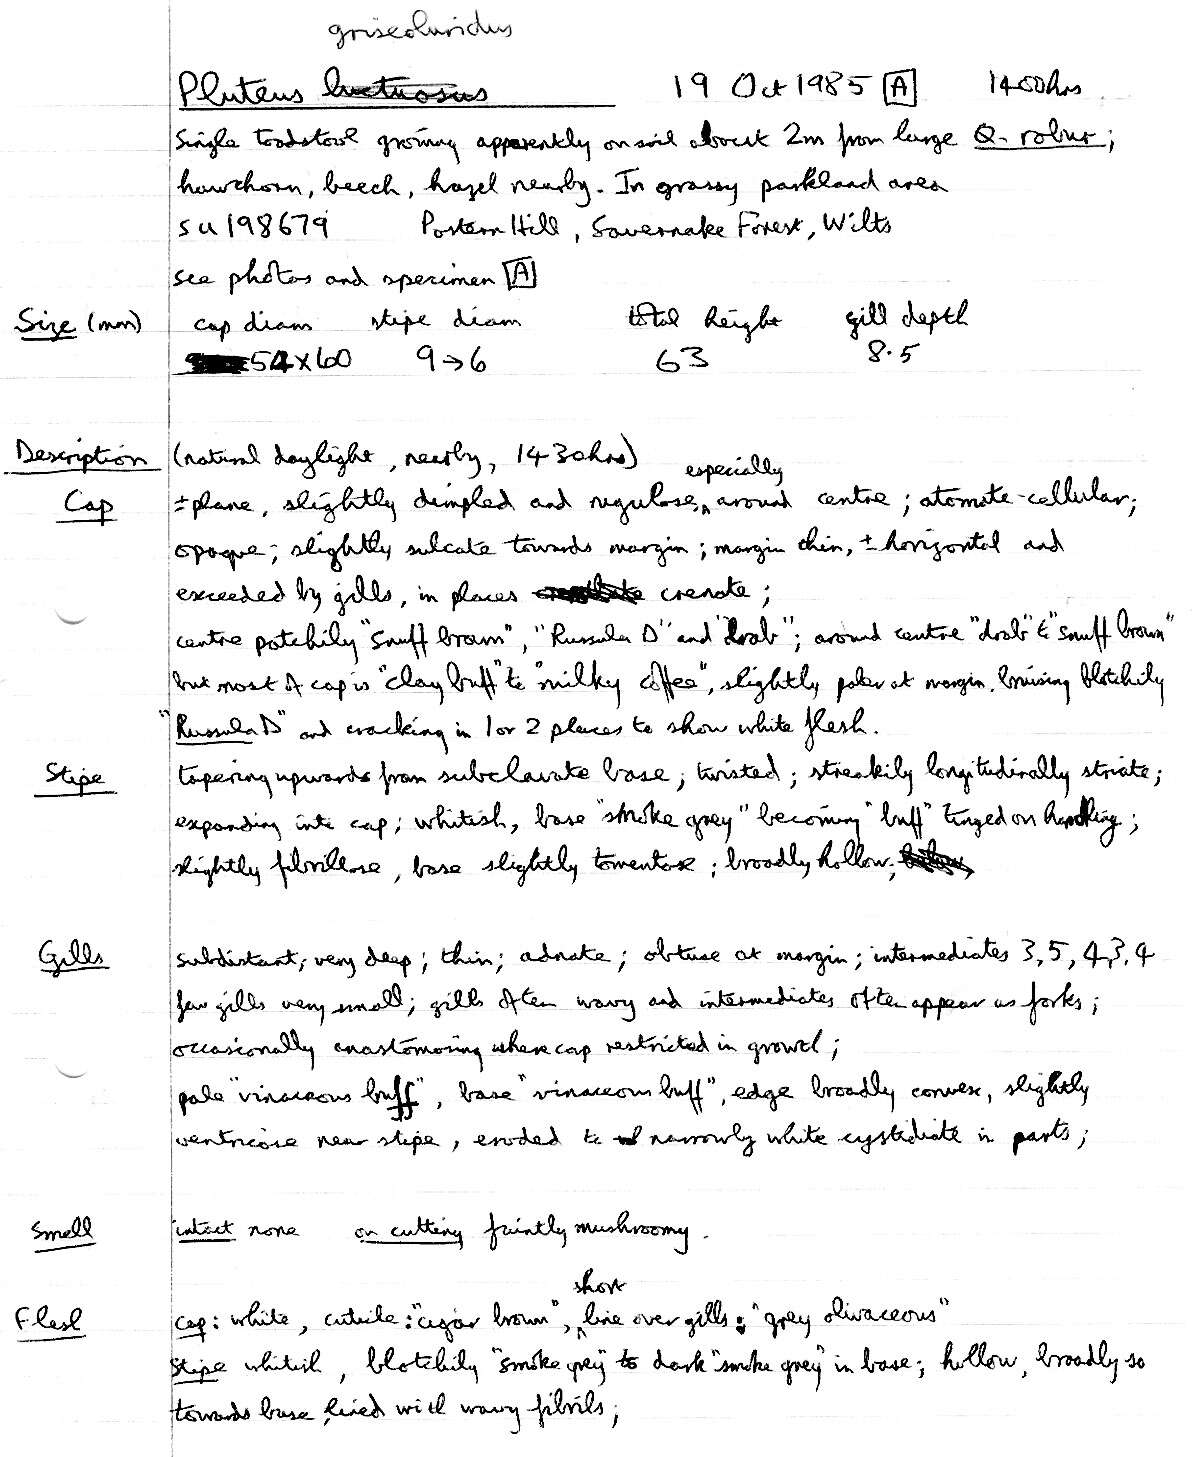 griseoluridus
Pluteus luctuosus 19 Oct 1985 A 1400hrs
Single toadstool growing apparently on soil about 2m from large Q. robur;
hawthorn, beech, hazel nearby. In grassy parkland area
SU198679 Postern Hill, Savernake Forest, Wilts
see photos and specimen A
Size (mm) cap diam stipe diam total height gill depth
54×60 9→6 63 8.5
Description (natural daylight, nearby, 1430hrs)
especially
Cap ±plane, slightly dimpled and rugulose, around centre; atomate-cellular;
opaque; slightly sulcate towards margin; margin thin, ± horizontal and
exceeded by gills, in places crenate;
centre patchily "snuff brown", "Russula D" and "drab"; around centre "drab" to "snuff brown"
but most of cap is "clay buff" to "milky coffee", slightly paler at margin. bruising blotchily
"Russula D" and cracking in 1 or 2 places to show white flesh.
Stipe tapering upwards from subclavate base; twisted; streakily longitudinally striate;
expanding into cap; whitish, base "smoke grey" becoming "buff" tinged on handling;
slightly fibrillose, base slightly tomentose; broadly hollow;
Gills subdistant; very deep; thin; adnate; obtuse at margin; intermediates 3, 5, 4, 3, 4
few gills very small; gills often wavy and intermediates often appear as forks;
occasionally anastomosing where cap restricted in growth;
pale "vinaceous buff", base "vinaceous buff", edge broadly convex, slightly
ventricose near stipe, eroded to narrowly white cystidiate in parts;
Smell intact none on cutting faintly mushroomy.
short
Flesh cap: white, cuticle: "cigar brown", line over gills: "grey olivaceous"
Stipe whitish, blotchily "smoke grey" to dark "smoke grey" in base; hollow, broadly so
towards base, lined with wavy fibrils;